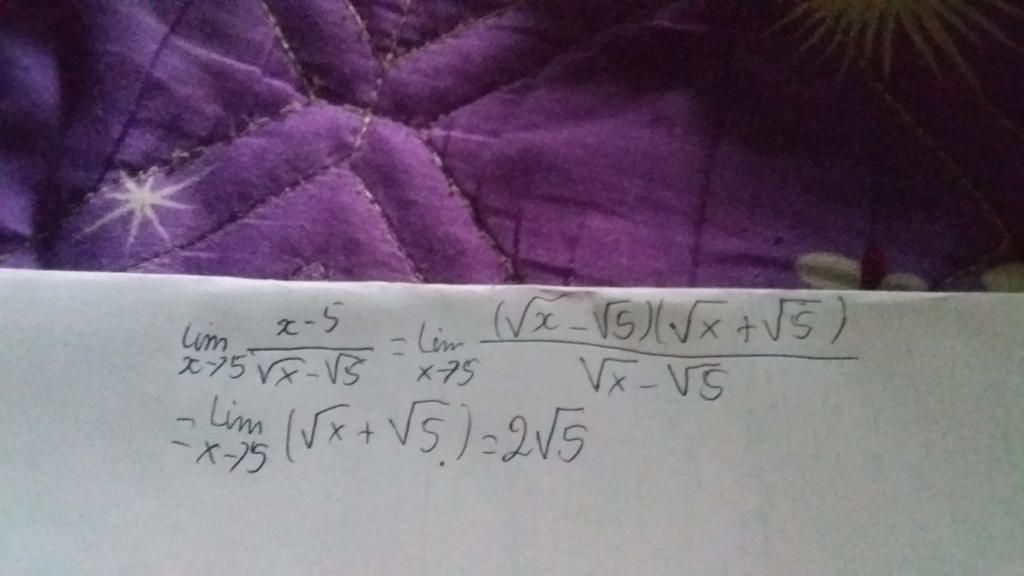 lim x→5 (x-5)/(√x-√5) = lim x→5 ((√x-√5)(√x+√5))/(√x-√5)
= lim x→5 (√x+√5) = 2√5